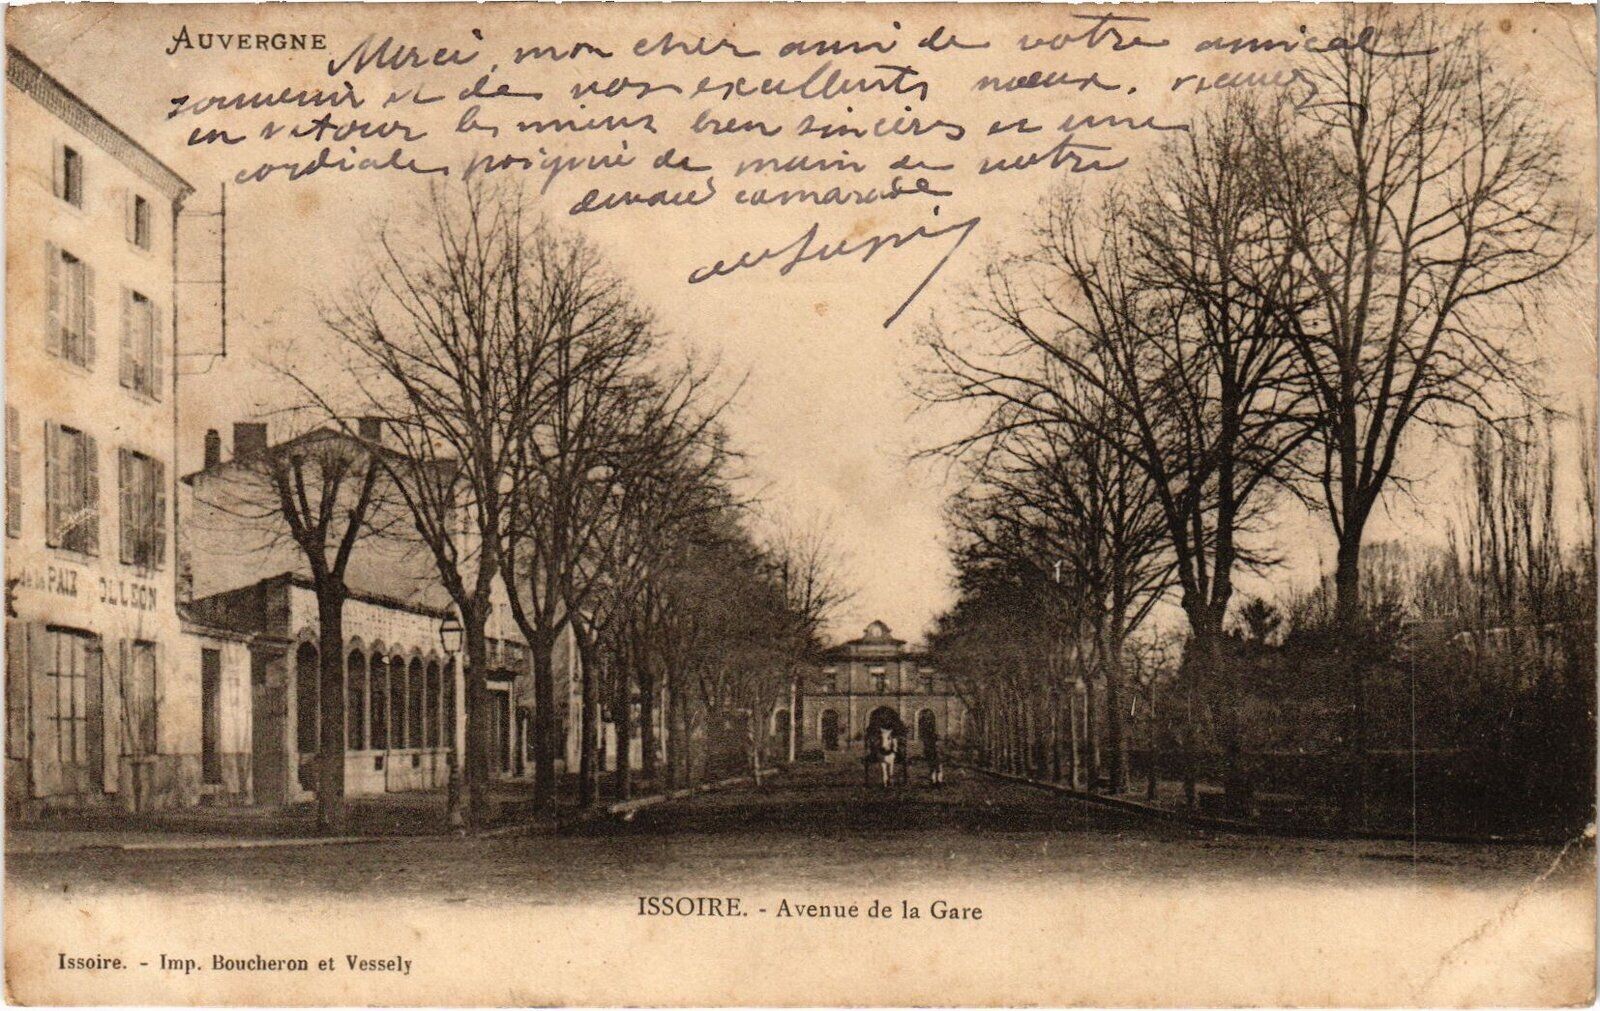 AUVERGNE
Merci, mon cher ami de votre amical
souvenir et de vos excellents vœux. recevez
en retour les miens bien sincères et une
cordiale poignée de main de votre
dévoué camarade
de la PAIX OLLEON
ISSOIRE. - Avenue de la Gare
Issoire. - Imp. Boucheron et Vessely